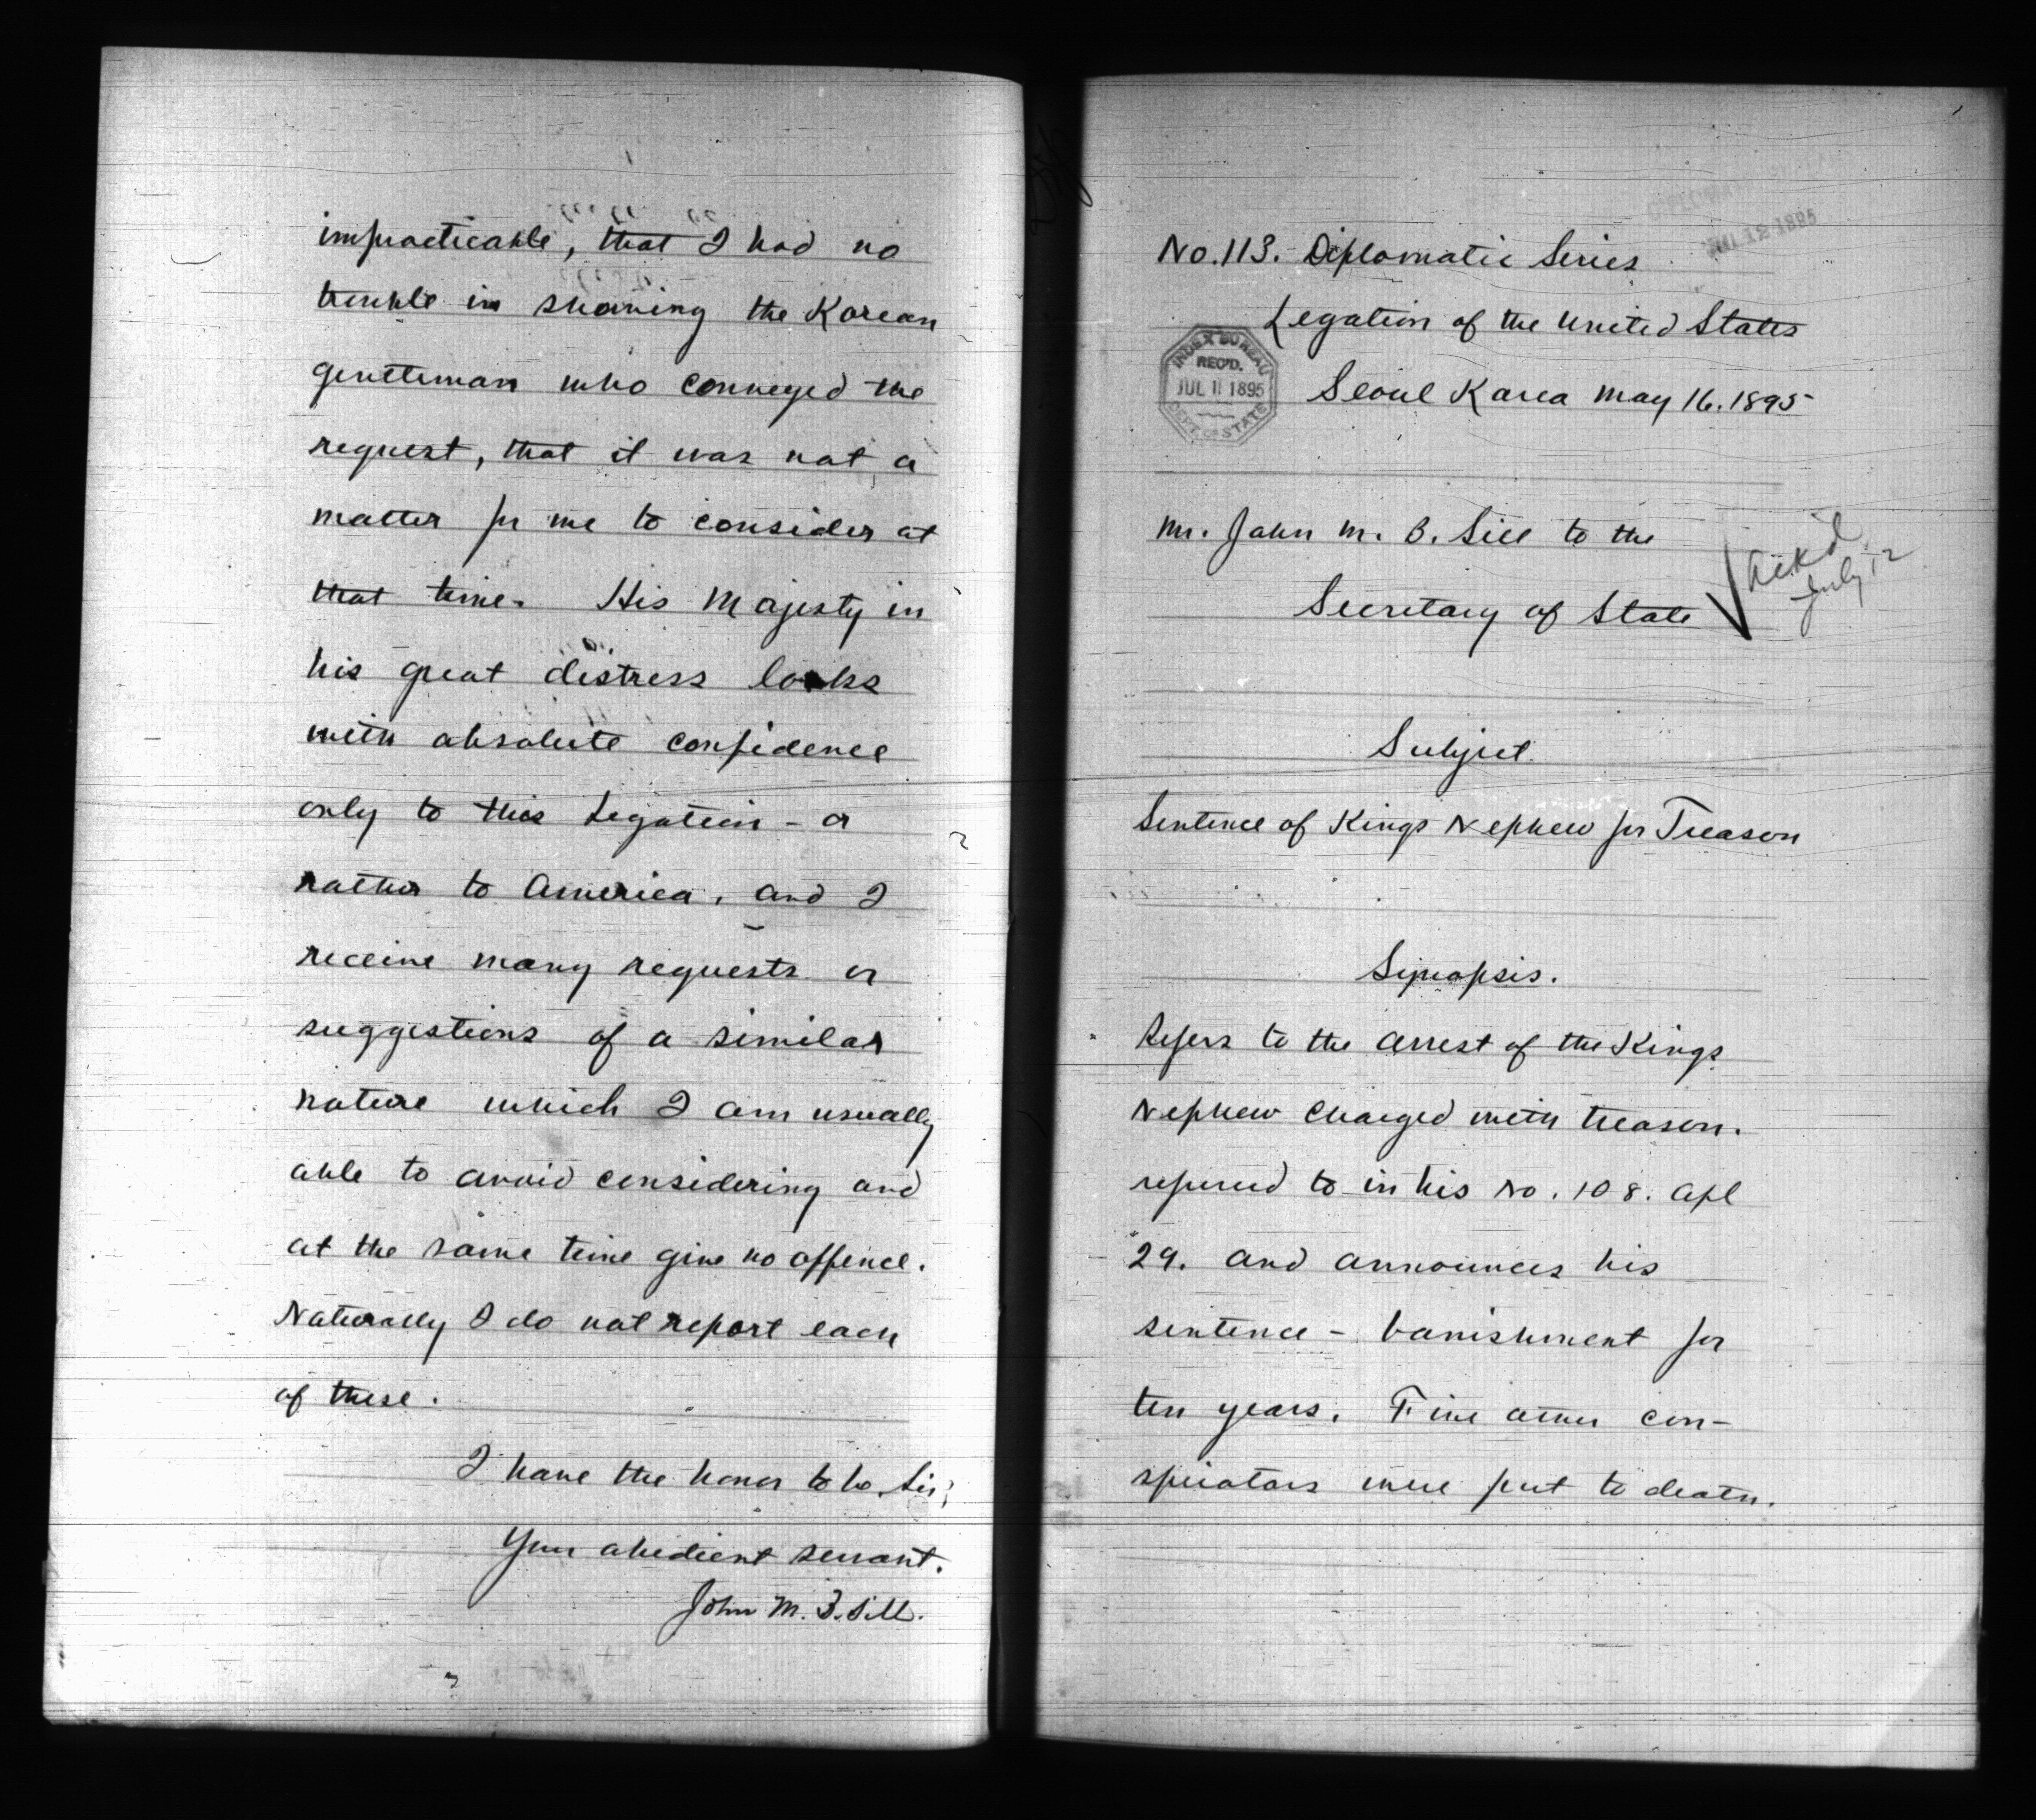 impracticable, that I had no
trouble in showing the Korean
gentleman who conveyed the
request, that it was not a
matter for me to consider at
that time. His Majesty in
his great distress looks
with absolute confidence
only to this Legation - or
rather to America, and I
receive many requests or
suggestions of a similar
nature which I am usually
able to avoid considering and
at the same time give no offence.
Naturally I do not report each
of these.
I have the honor to be, Sir,
Your obedient servant,
John M. B. Sill.
DIPLOMATIC
JUL 12 1895
No. 113. Diplomatic Series
Legation of the United States
Seoul Korea May 16. 1895
INDEX BUREAU
REC'D.
JUL 11 1895
DEPT. OF STATE
Mr. John M. B. Sill to the
Secretary of State
Ack'd
July 12
Subject.
Sentence of Kings Nephew for Treason
Synopsis.
Refers to the arrest of the Kings
Nephew charged with treason.
referred to in his No. 108. Apl
29. and announces his
sentence - banishment for
ten years. Five other con-
spirators were put to death.